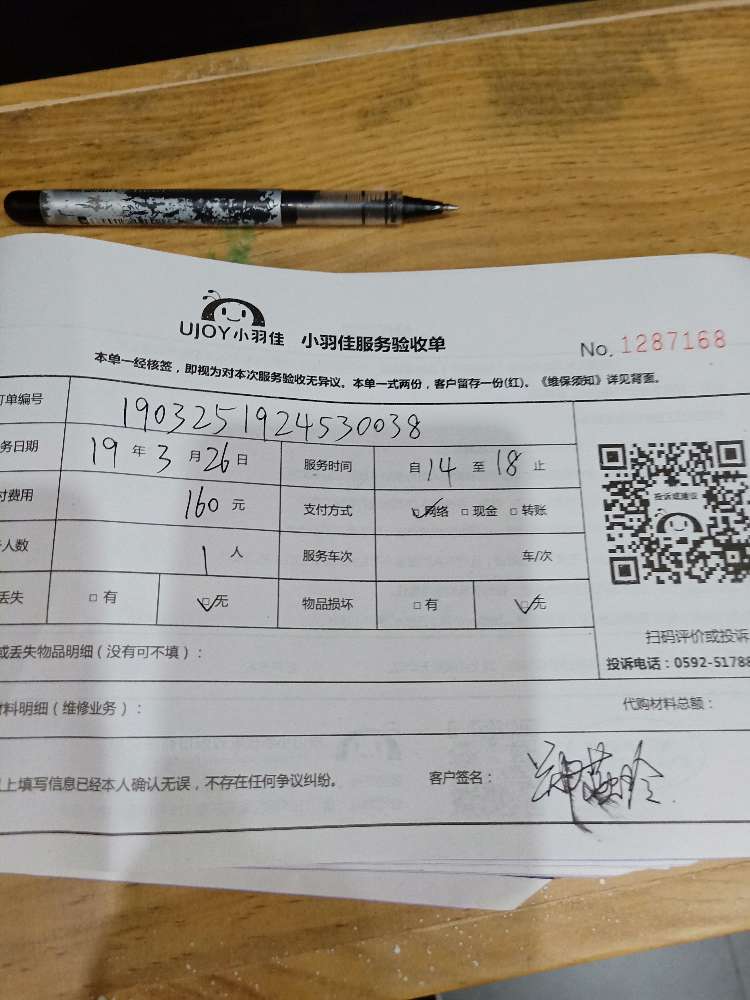 UJOY小羽佳 小羽佳服务验收单 No. 1287168
本单一经核签，即视为对本次服务验收无异议。本单一式两份，客户留存一份(红)。《维保须知》详见背面。
订单编号 1903251924530038
务日期 19 年 3 月 26 日 服务时间 自 14 至 18 止
付费用 160 元 支付方式 ☑网络 □现金 □转账
人数 1 人 服务车次 车/次
丢失 □有 ☑无 物品损坏 □有 ☑无
投诉或建议
扫码评价或投诉
投诉电话：0592-51788
或丢失物品明细（没有可不填）：
材料明细（维修业务）： 代购材料总额：
上填写信息已经本人确认无误，不存在任何争议纠纷。 客户签名：